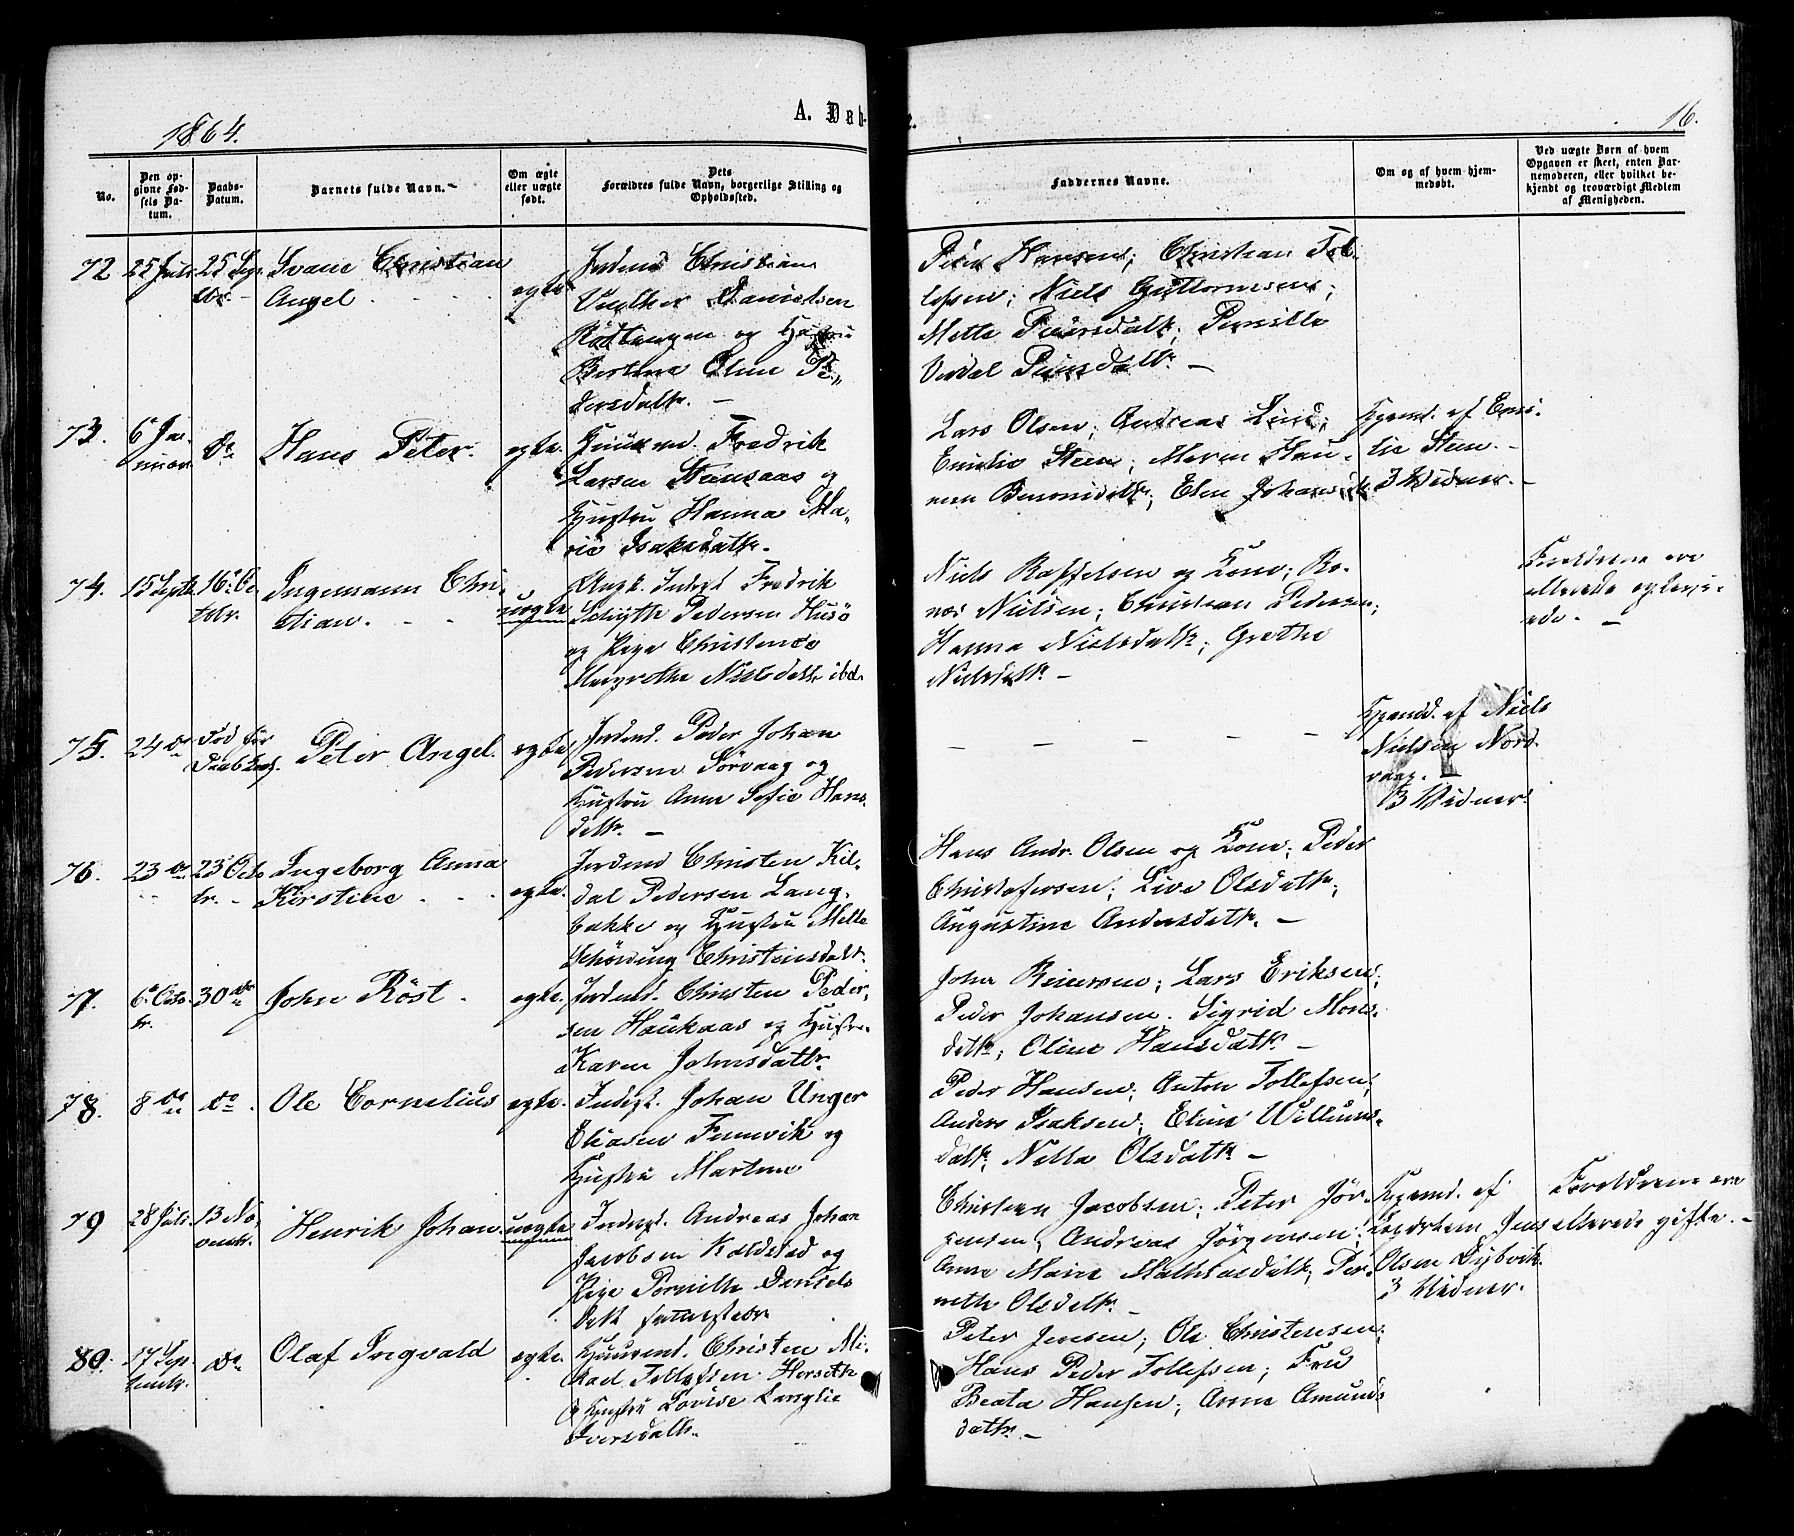 1864.
A. Døb-
e.
16.
No.
Den op-
givne Fød-
sels Da-
tum.
Daabs-
Datum.
Barnets fulde Navn.
Om ægte
eller uægte
født.
Dets
Forældres fulde Navn, borgerlige Stilling og
Opholdssted.
Faddernes Navne.
Om og af hvem hjem-
medøbt.
Ved uægte Børn af hvem
Opgaven er skeet, enten Bar-
nemoderen, eller hvilket be-
kjendt og troværdigt Medlem
af Menigheden.
72
25 Juli
25 Sep
tbr
Svane Christian
Angel
egte
Inderst Christian
Danielsen
Rödtangen og Hustru
Bertine Oline Pe-
dersdatr. -
Peder Hansen; Christian Tol
lefsen; Niels Guttormsen;
Mette Peersdatr; Pernille
Peersdatr. -
73.
6 Ja-
nuar
do
Hans Peter.
egte.
Huusmd. Fredrik
Larsen Steensaas og
Hustru Hanna Ma-
rie Isaksdatr.
Lars Olsen; Andreas Lund;
Emilie Steen; Maren Han-
nea Benonidatr; Elen Johansdtr
Hjemd. af Emi-
lie Steen. -
3 Vidner. -
74.
15 Septr
16 Oc
tobr.
Ingemann Chri-
stian.
uægte
Ungk. Inderst Fredrik
Schytte Pedersen Husö
og Pige Christence
Margrethe Nielsdatr ibd.
Niels Raffelsen og Kone; Ro-
nas Nielsen; Christian Pedersen;
Hanna Nielsdatr; Grethe
Nielsdatr. -
Foreldrene ere
allerede egtevi-
ede. -
75.
24 do
Död för
Daab
Peter Angel.
egte
Inderst. Peder Johan
Pedersen Sörvaag og
Hustru Anne Sofie Hans-
datr. -
- - - - -
Hjemd. af Niels
Nielsen Nord-
vaag. -
3 Vidner.
76.
23 do
23 Octo
br. -
Ingeborg Anna
Kirstine
egte.
Inderst Christen Kil-
dal Pedersen Lang-
bakke og Hustru Mette
Schörding Christensdatr.
Hans Andr. Olsen og Kone; Peder
Christofersen; Live Olsdatr;
Augustine Andersdatr. -
77.
6 Octo
br.
30 do
John Röst.
egte.
Inderst. Christen Peder-
sen Haukaas og Hustru
Karen Johnsdatr.
John Reiersen; Lars Eriksen;
Peder Johansen. Sigrid Mons-
datr; Oline Hansdatr -
78.
8 do
do
Ole Cornelius
egte.
Inderst. Johan Unger
Eliasen Finnvik og
Hustru Martine
Peder Hansen; Anton Tollefsen;
Anders Isaksen; Eline Willums-
datr; Nella Olsdatr -
79
28 Juli.
13 No-
vembr.
Henrik Johan
uægte
Inderst. Andreas Johan
Jacobsen Kaldstad og
Pige Pernille Daniels
datr
Christian Jacobsen; Peter Jör-
gensen; Andreas Jörgensen;
Anne Marie Mathiasdatr; Per-
nelle Olsdatr. -
Hjemd. af
Jens
Olsen Dybvik.
3 Vidner.
Foreldrene ere
allerede gifte. -
80.
17 Sep-
tembr.
do
Olaf Ingvald
egte.
Huusmd. Christen Mi-
kael Tollefsen Horseth
& Hustru Lovise Langlie
Iversdatr.
Peter Jensen; Ole Christensen;
Hans Peder Tollefsen; Fru
Beata Hansen; Anne Amunds
datr. -